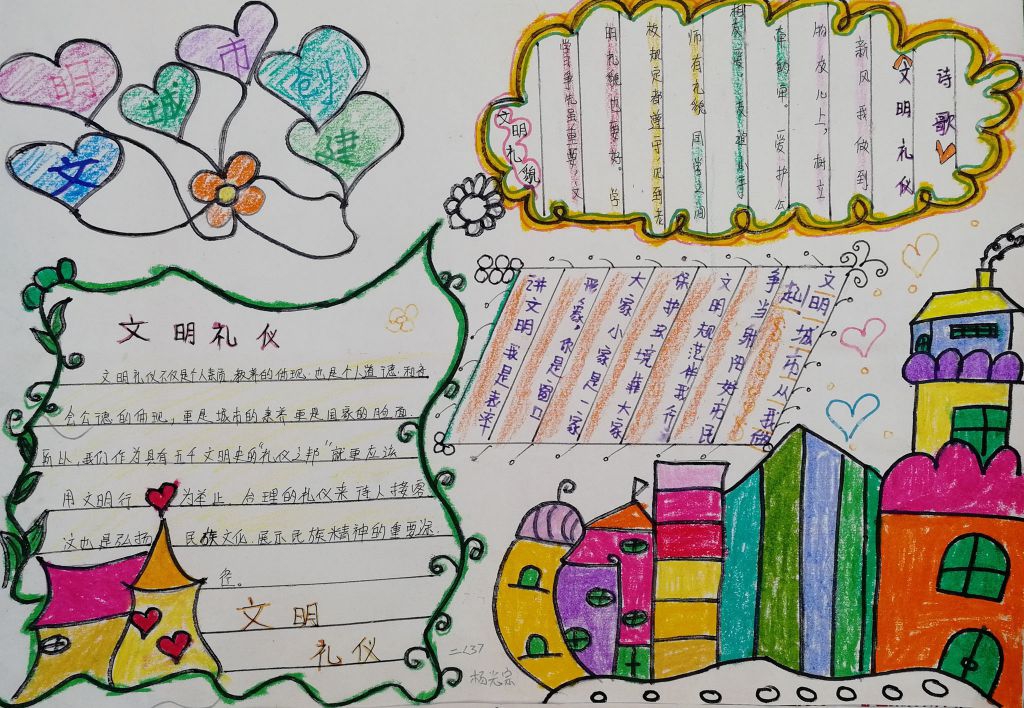 文明城市创建
文明礼仪
文明礼仪不仅是个人素质、教养的体现,也是个人道德和社
会公德的体现,更是城市的素养更是国家的脸面.
所以,我们作为具有五千文明史的"礼仪之邦"就更应该
用文明行为举止,合理的礼仪来待人接客
这也是弘扬民族文化.展示民族精神的重要途
径。
文明
礼仪
诗歌
文明礼仪
文明礼貌
学习争先虽重要,文
明礼貌也要好。学
校规定都遵守 见到老
师有礼貌 同学之间
相敬爱 友谊小手
牵的牢。爱护公
物放心上,树立
新风我做到
讲文明我是表率
形象,你是窗口
大家小家是一家
保护环境靠大家
文明规范伴我行
争当射阳好市民
文明城市从我做
起
二(37
杨光宗